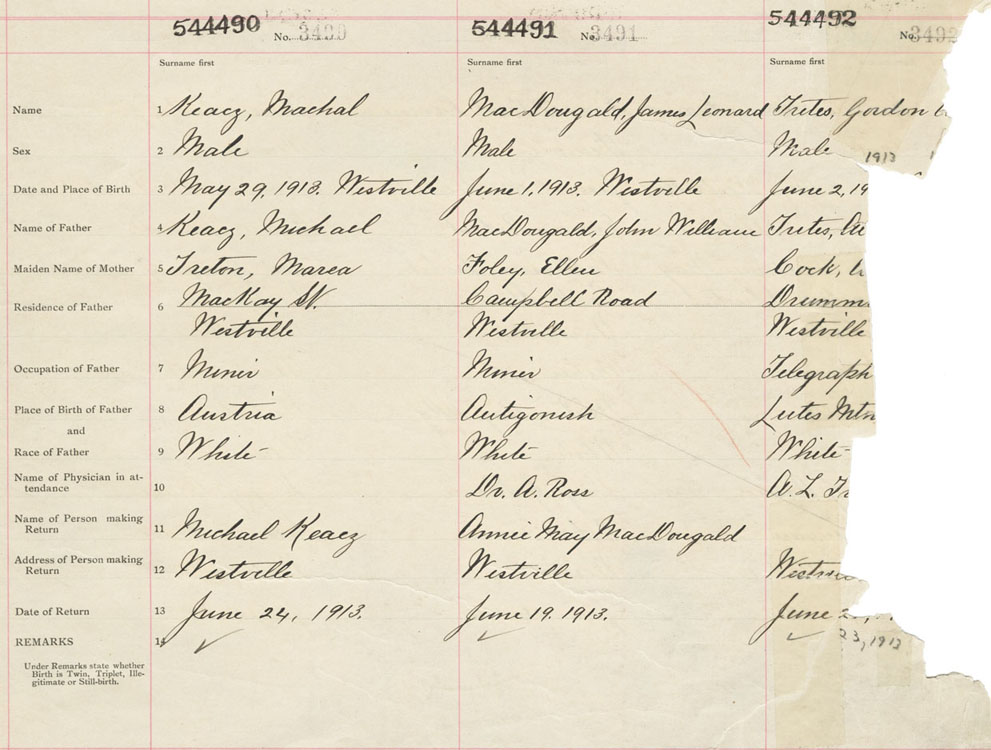 544490 No. 3490 544491 No. 3491 544492 No. 3492
Surname first Surname first Surname first
Name 1 Keacz, Machal MacDougald, James Leonard Trites, Gordon
Sex 2 Male Male Male 1913
Date and Place of Birth 3 May 29, 1913. Westville June 1, 1913. Westville June 2, 19
Name of Father 4 Keacz, Michael MacDougald, John William Trites,
Maiden Name of Mother 5 Treton, Marea Foley, Ellen Cock,
Residence of Father 6 MacKay St. Campbell Road Drumm
Westville Westville Westville
Occupation of Father 7 Miner Miner Telegraph
Place of Birth of Father 8 Austria Antigonish Lutes Mtn
and
Race of Father 9 White White White
Name of Physician in at-
tendance 10 Dr. A. Ross A. L.
Name of Person making
Return 11 Michael Keacz Annie May MacDougald
Address of Person making
Return 12 Westville Westville
Date of Return 13 June 24, 1913. June 19. 1913. June 2
REMARKS 14 23, 1913
Under Remarks state whether
Birth is Twin, Triplet, Ille-
gitimate or Still-birth.